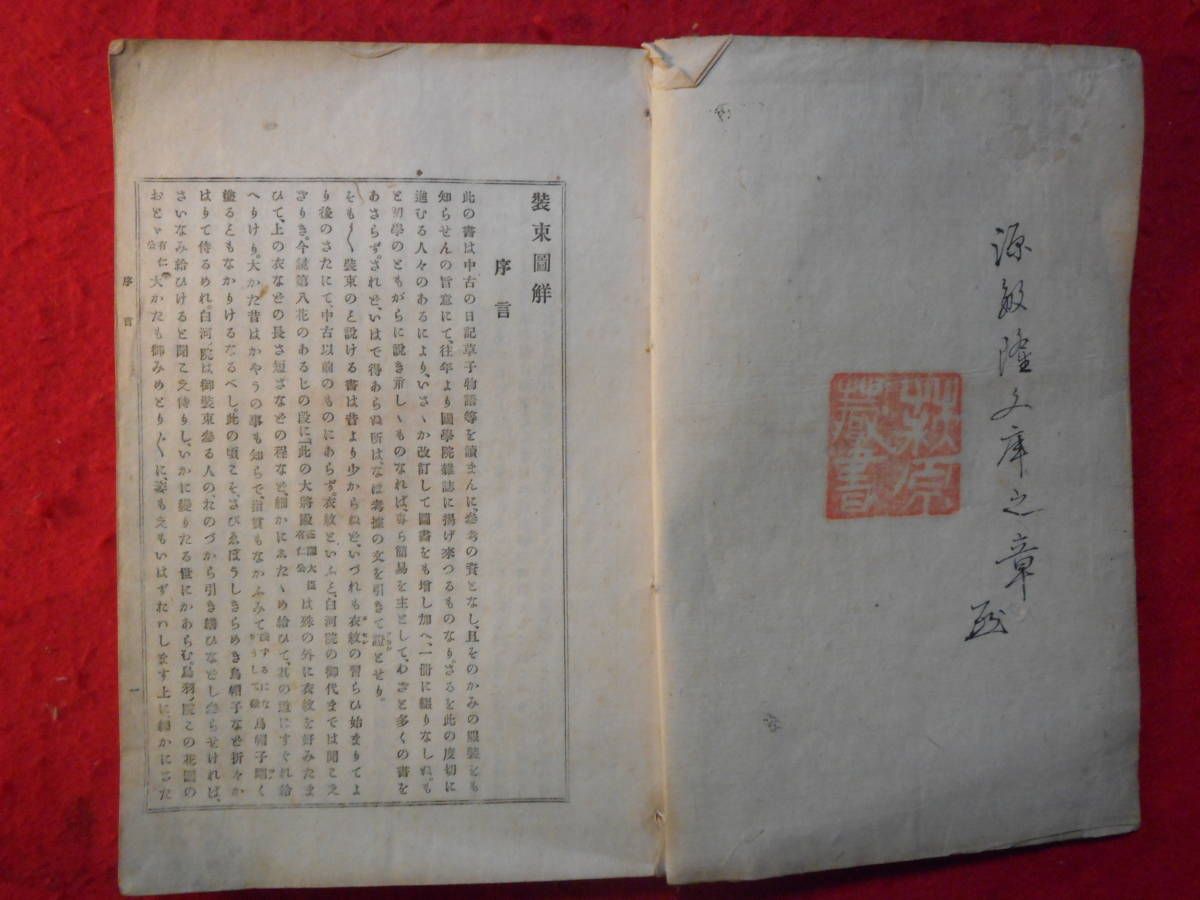 源敏隆文庫之章
萩原
蔵書
装束圖解
序言
此の書は中古の日記草子物語等を讀まんに、參考の資となし、且そのかみの服装をも
知らせんの旨意にて、往年より國學院雜誌に揚げ來つるものなり。さるを此の度切に
進むる人々のあるにより、いさゝか改訂して圖書をも増し加へ、一冊に綴りなしぬ。も
と初學のともがらに說き示しゝものなれば、專ら簡易を主として、わざと多くの書を
あさらず。されど、いはで得あらぬ所は、なほ考據の文を引きて證とせり。
そも〳〵裝束のこと說ける書は昔より少からねど、いづれも衣紋の習らひ始まりてよ
り後のさたにて、中古以前のものにあらず。衣紋といふこと、白河院の御代までは聞こえ
ざりき。今鏡第八花のあるじの段に「此の大將殿有仁公は殊の外に衣紋を好みたま
ひて、上の衣などの長さ短さなどの程など、細かにしたゝめ給ひて、其の道にすぐれ給
へりけり。大かた昔はかやうの事も知らで、指貫もなかふみて烏帽子
塗ることもなかりけるなるべし。此の頃こそ、さびゑぼうしきらめき烏帽子など折々か
はりて侍るめれ。白河院は御裝束參る人の、おのづから引き繕ひなどし參らせければ、
さいなみ給ひけると聞こえ侍りし。いかに變りたる世にかあらむ。鳥羽院この花園の
おとゞ有仁公大かたも御みめとり〴〵に、姿もえもいはずおはします上に、細かにさた
序言
一